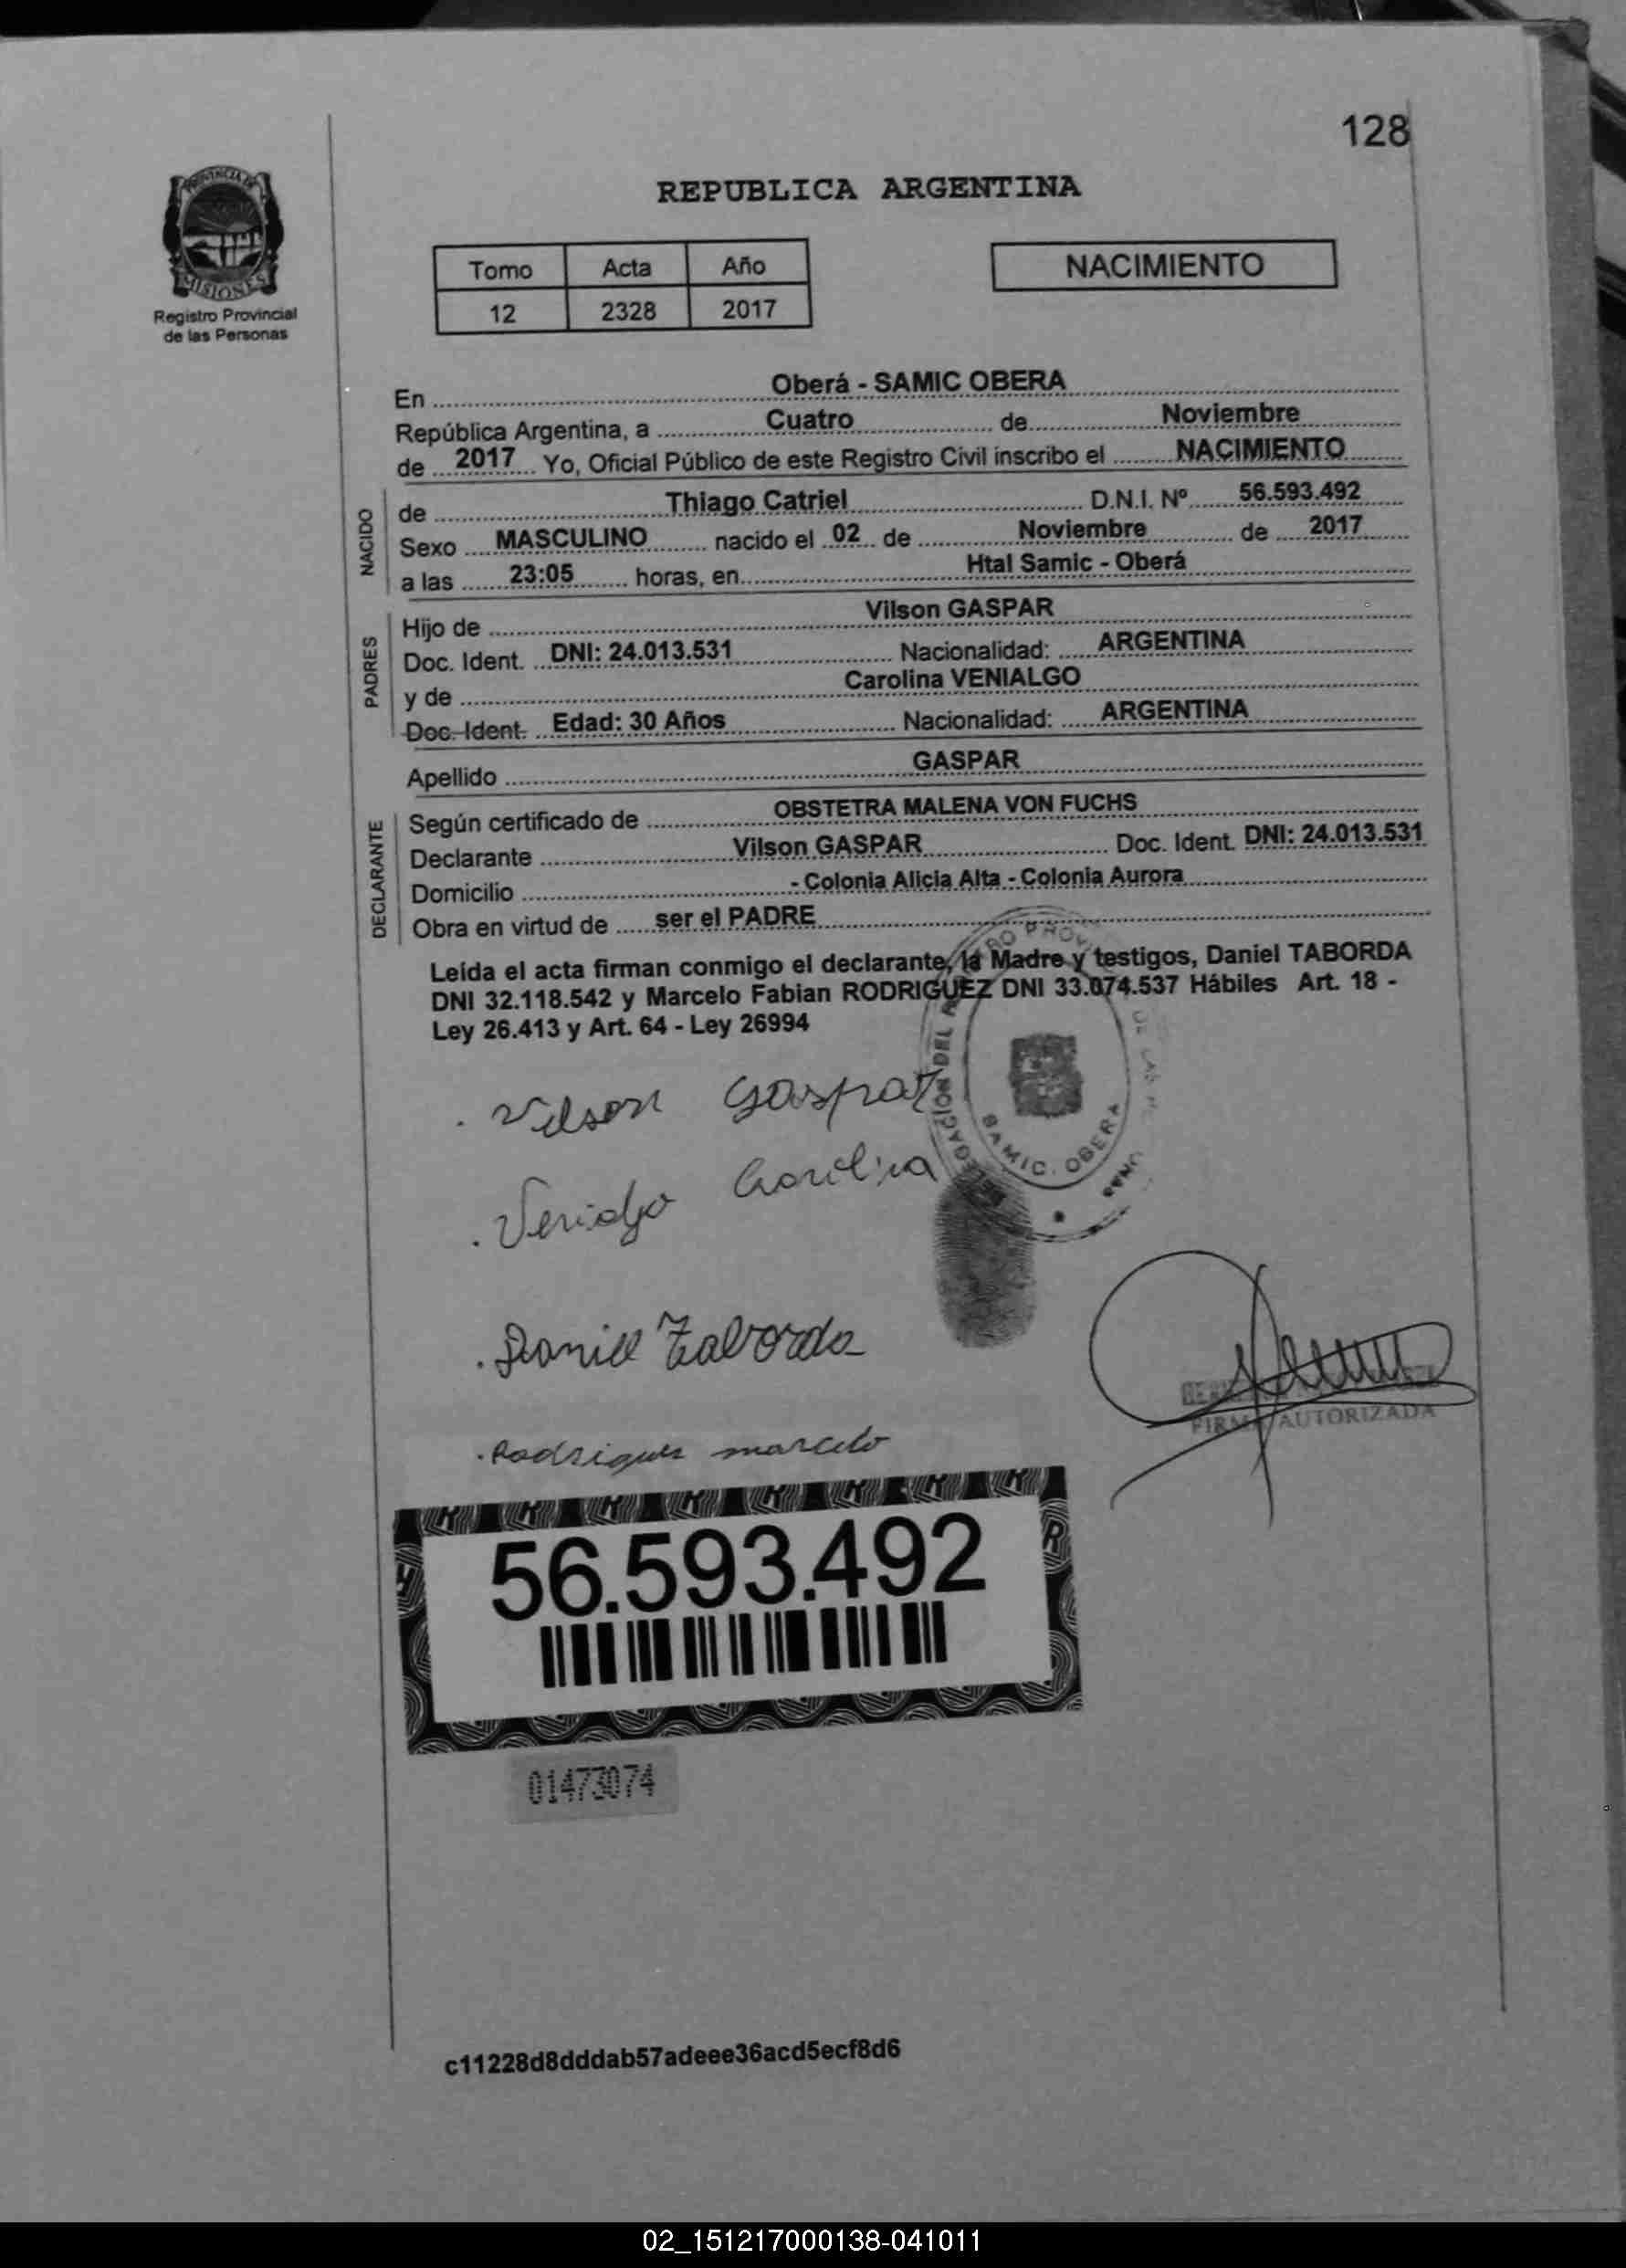 128
PROVINCIA DE
MISIONES
Registro Provincial
de las Personas
REPUBLICA ARGENTINA
Tomo Acta Año
12 2328 2017
NACIMIENTO
En Oberá - SAMIC OBERA
República Argentina, a Cuatro de Noviembre
de 2017 Yo, Oficial Público de este Registro Civil inscribo el NACIMIENTO
NACIDO
de Thiago Catriel D.N.I. Nº 56.593.492
Sexo MASCULINO nacido el 02 de Noviembre de 2017
a las 23:05 horas, en Htal Samic - Oberá
PADRES
Hijo de Vilson GASPAR
Doc. Ident. DNI: 24.013.531 Nacionalidad: ARGENTINA
y de Carolina VENIALGO
Doc. Ident. Edad: 30 Años Nacionalidad: ARGENTINA
Apellido GASPAR
DECLARANTE
Según certificado de OBSTETRA MALENA VON FUCHS
Declarante Vilson GASPAR Doc. Ident. DNI: 24.013.531
Domicilio - Colonia Alicia Alta - Colonia Aurora
Obra en virtud de ser el PADRE
Leída el acta firman conmigo el declarante, la Madre y testigos, Daniel TABORDA
DNI 32.118.542 y Marcelo Fabian RODRIGUEZ DNI 33.074.537 Hábiles Art. 18 -
Ley 26.413 y Art. 64 - Ley 26994
SAMIC. OBERA
. Vilson Gaspar
. Venialgo Carolina
. Daniel Taborda
FIRMA AUTORIZADA
. Rodrigues marcelo
56.593.492
01473074
c11228d8dddab57adeee36acd5ecf8d6
02_151217000138-041011